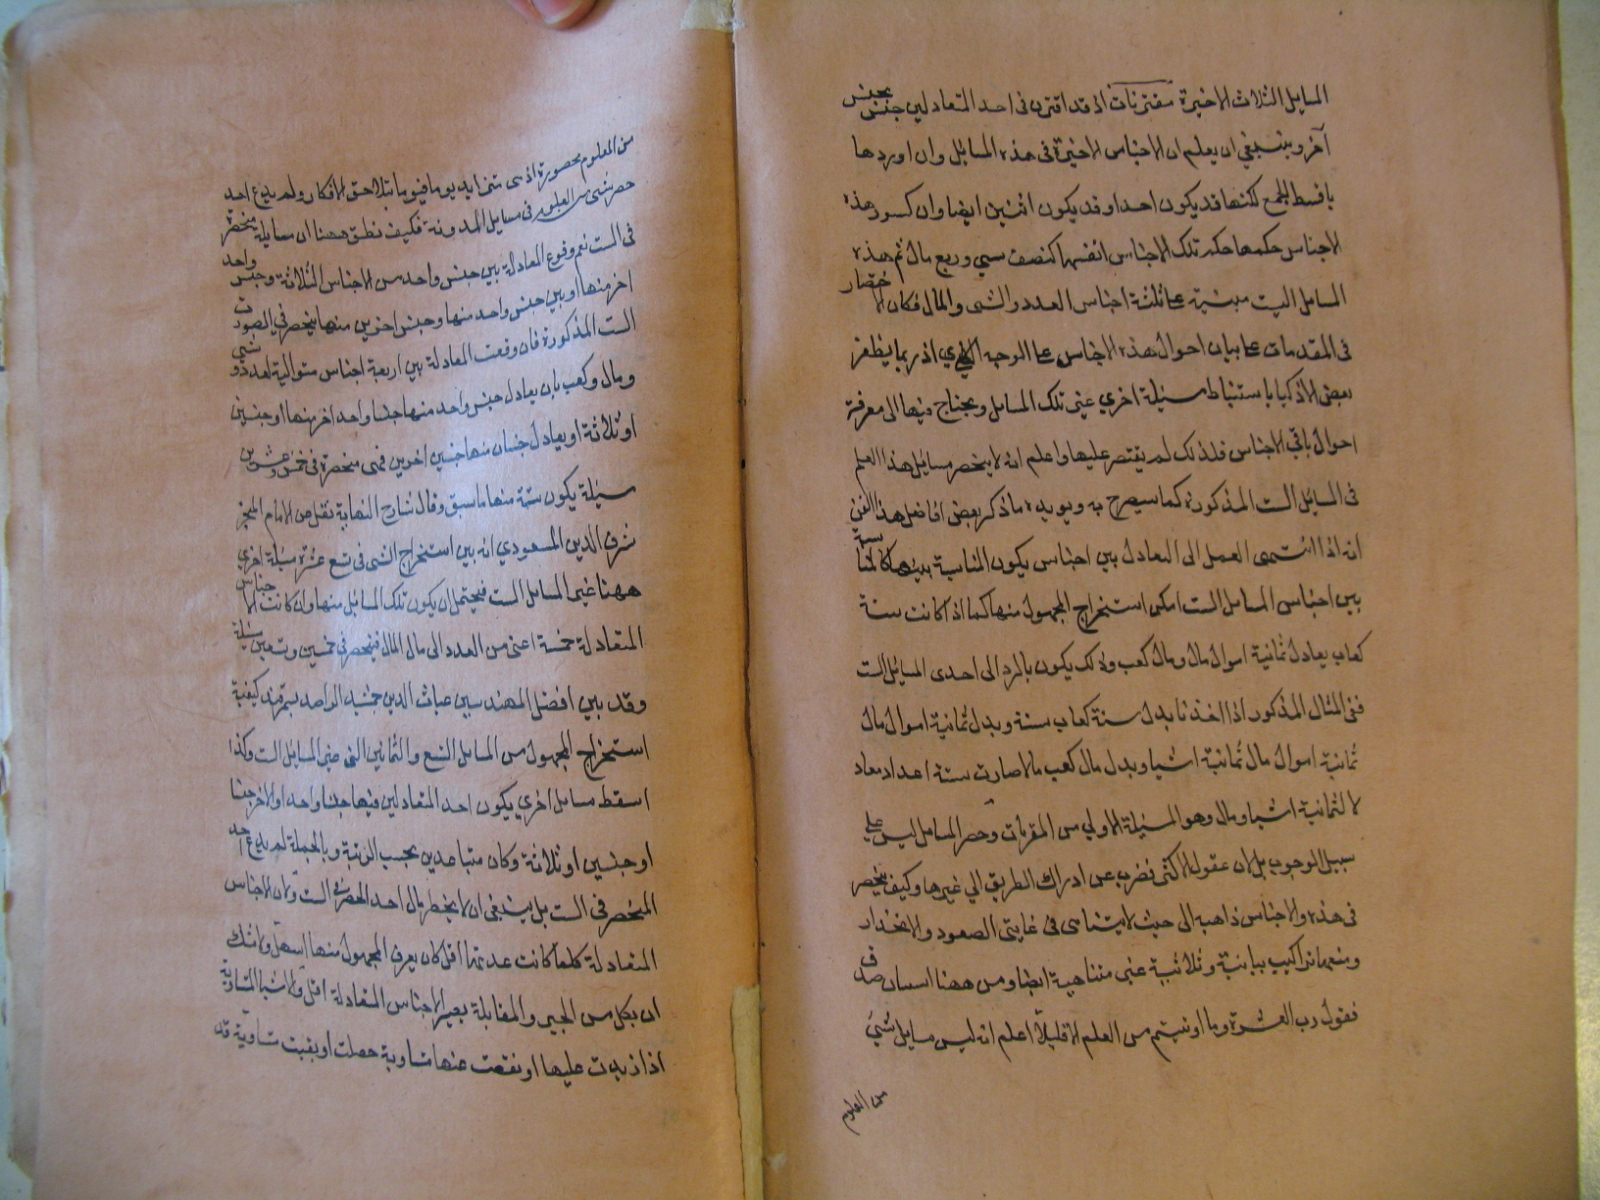 المسايل الثلاث الاخيرة مقترنات اذ قد اقترن فى احد المتعادلين جنس بجنس
آخر وينبغي ان يعلم ان الاجناس الاخيرة فى هذه المسائل وان اوردها
بلفظ الجمع لكنها قد يكون احدا وقد يكون اثنين ايضا وان كسور هذه
الاجناس حكمها حكم تلك الاجناس انفسها كنصف شي وربع مال ثم هذه
المسايل الست مبنية على ثلثة اجناس العدد والشى والمال فكان الاختصار
فى المقدمات على بيان احوال هذه الاجناس على الوجه الكلي اذ ربما يظفر
بعض الاذكيا باستنباط مسئلة اخري غير تلك المسايل ويحتاج فيها الى معرفة
احوال باقي الاجناس فلذلك لم يقتصر عليها واعلم انه لا ينحصر مسايل هذا العلم
فى المسايل الست المذكورة كما سيصرح به ويويده ما ذكر بعض افاضل هذا الفن
انه اذا انتهى العمل الى التعادل بين اجناس يكون المناسبة بينها كالمناسبة
بين اجناس المسايل الست امكن استخراج المجهول منها كما اذا كانت ستة
كعاب يعادل ثمانية اموال مال ومال كعب وذلك يكون بالرد الى احدى المسايل الست
ففى المثال المذكور اذا اخذنا بدل ستة كعاب ستة وبدل ثمانية اموال مال
ثمانية اموال مال ثمانية اشيا وبدل مال كعب مالا صارت ستة اعداد معاد
لا لثمانية اشيا ومال وهو المسئلة الاولي من المقترنات وحصر المسايل ليس على
سبيل الوجوب بل لان عقول الاكثر فضرب عن ادراك الطريق الي غيرها وكيف ينحصر
فى هذه والاجناس ذاهبة الى حيث لا يتناهى فى غايتى الصعود والانحدار
ومنها تراكيب ثنائية وثلاثية غير متناهية ايضا ومن ههنا انسان صدق
فقول رب العزة وما اوتيتم من العلم الا قليلا اعلم انه ليس مسايل شئ
من العلوم
من العلوم محصورة اذ هى متزايدة يوما فيوما بتلاحق الافكار ولم يدع احد
حصر شى من العلوم فى مسايل المدونة فكيف نطق ههنا ان مسايله منحصرة
فى الست نعم وقوع المعادلة بين جنس واحد من الاجناس الثلاثة وجنس واحد
اخر منها او بين جنس واحد منها وجنس اخرين منها ينحصر في الصورت
الست المذكورة فان وقعت المعادلة بين اربعة اجناس متوالية كعدد وشى
ومال وكعب بان يعادل جنس واحد منها جنسا واحد اخر منها او جنسين
او ثلاثة او يعادل جنسان منها جنسين اخرين فهى منحصرة فى خمس وعشرين
مسئلة يكون ستة منها ما سبق وقال شارح النهاية نقل عن الامام المنجز
شرف الدين المسعودي انه بين استخراج الشى فى تسع عشرة مسئلة اخري
ههنا غير المسايل الست فيحتمل ان يكون تلك المسائل منها وان كانت الاجناس
المتعادلة خمسة اعنى من العدد الى مال المال فينحصر فى خمسين وتسعين مسئلة
وقد بين افضل المهندسين غياث الدين جمشيد الراصد بسمرقند كيفية
استخراج المجهول من المسايل التسع والثمانين التى غير المسايل الست وكذا
اسقط مسايل اخري يكون احد المتعادلين فيها جنسا واحد او الاخر جنسا
او جنسين او ثلاثة وكان متباعدين بحسب الرتبة وبالجملة لم يدع احد
المنحصر فى الست بل ينبغى ان لا يخطر ببال احد الحصر فى الست ولان الاجناس
المتعادلة كلما كانت عدتها اقل كان يعرف المجهول منها اسهل ولا شك
ان بكل من الجبر والمقابلة يصير الاجناس المتعادلة اقل والاشيا المتساوية
اذا زيدت عليها او نقصت عنها متساوية حصلت او بقيت متساوية قد